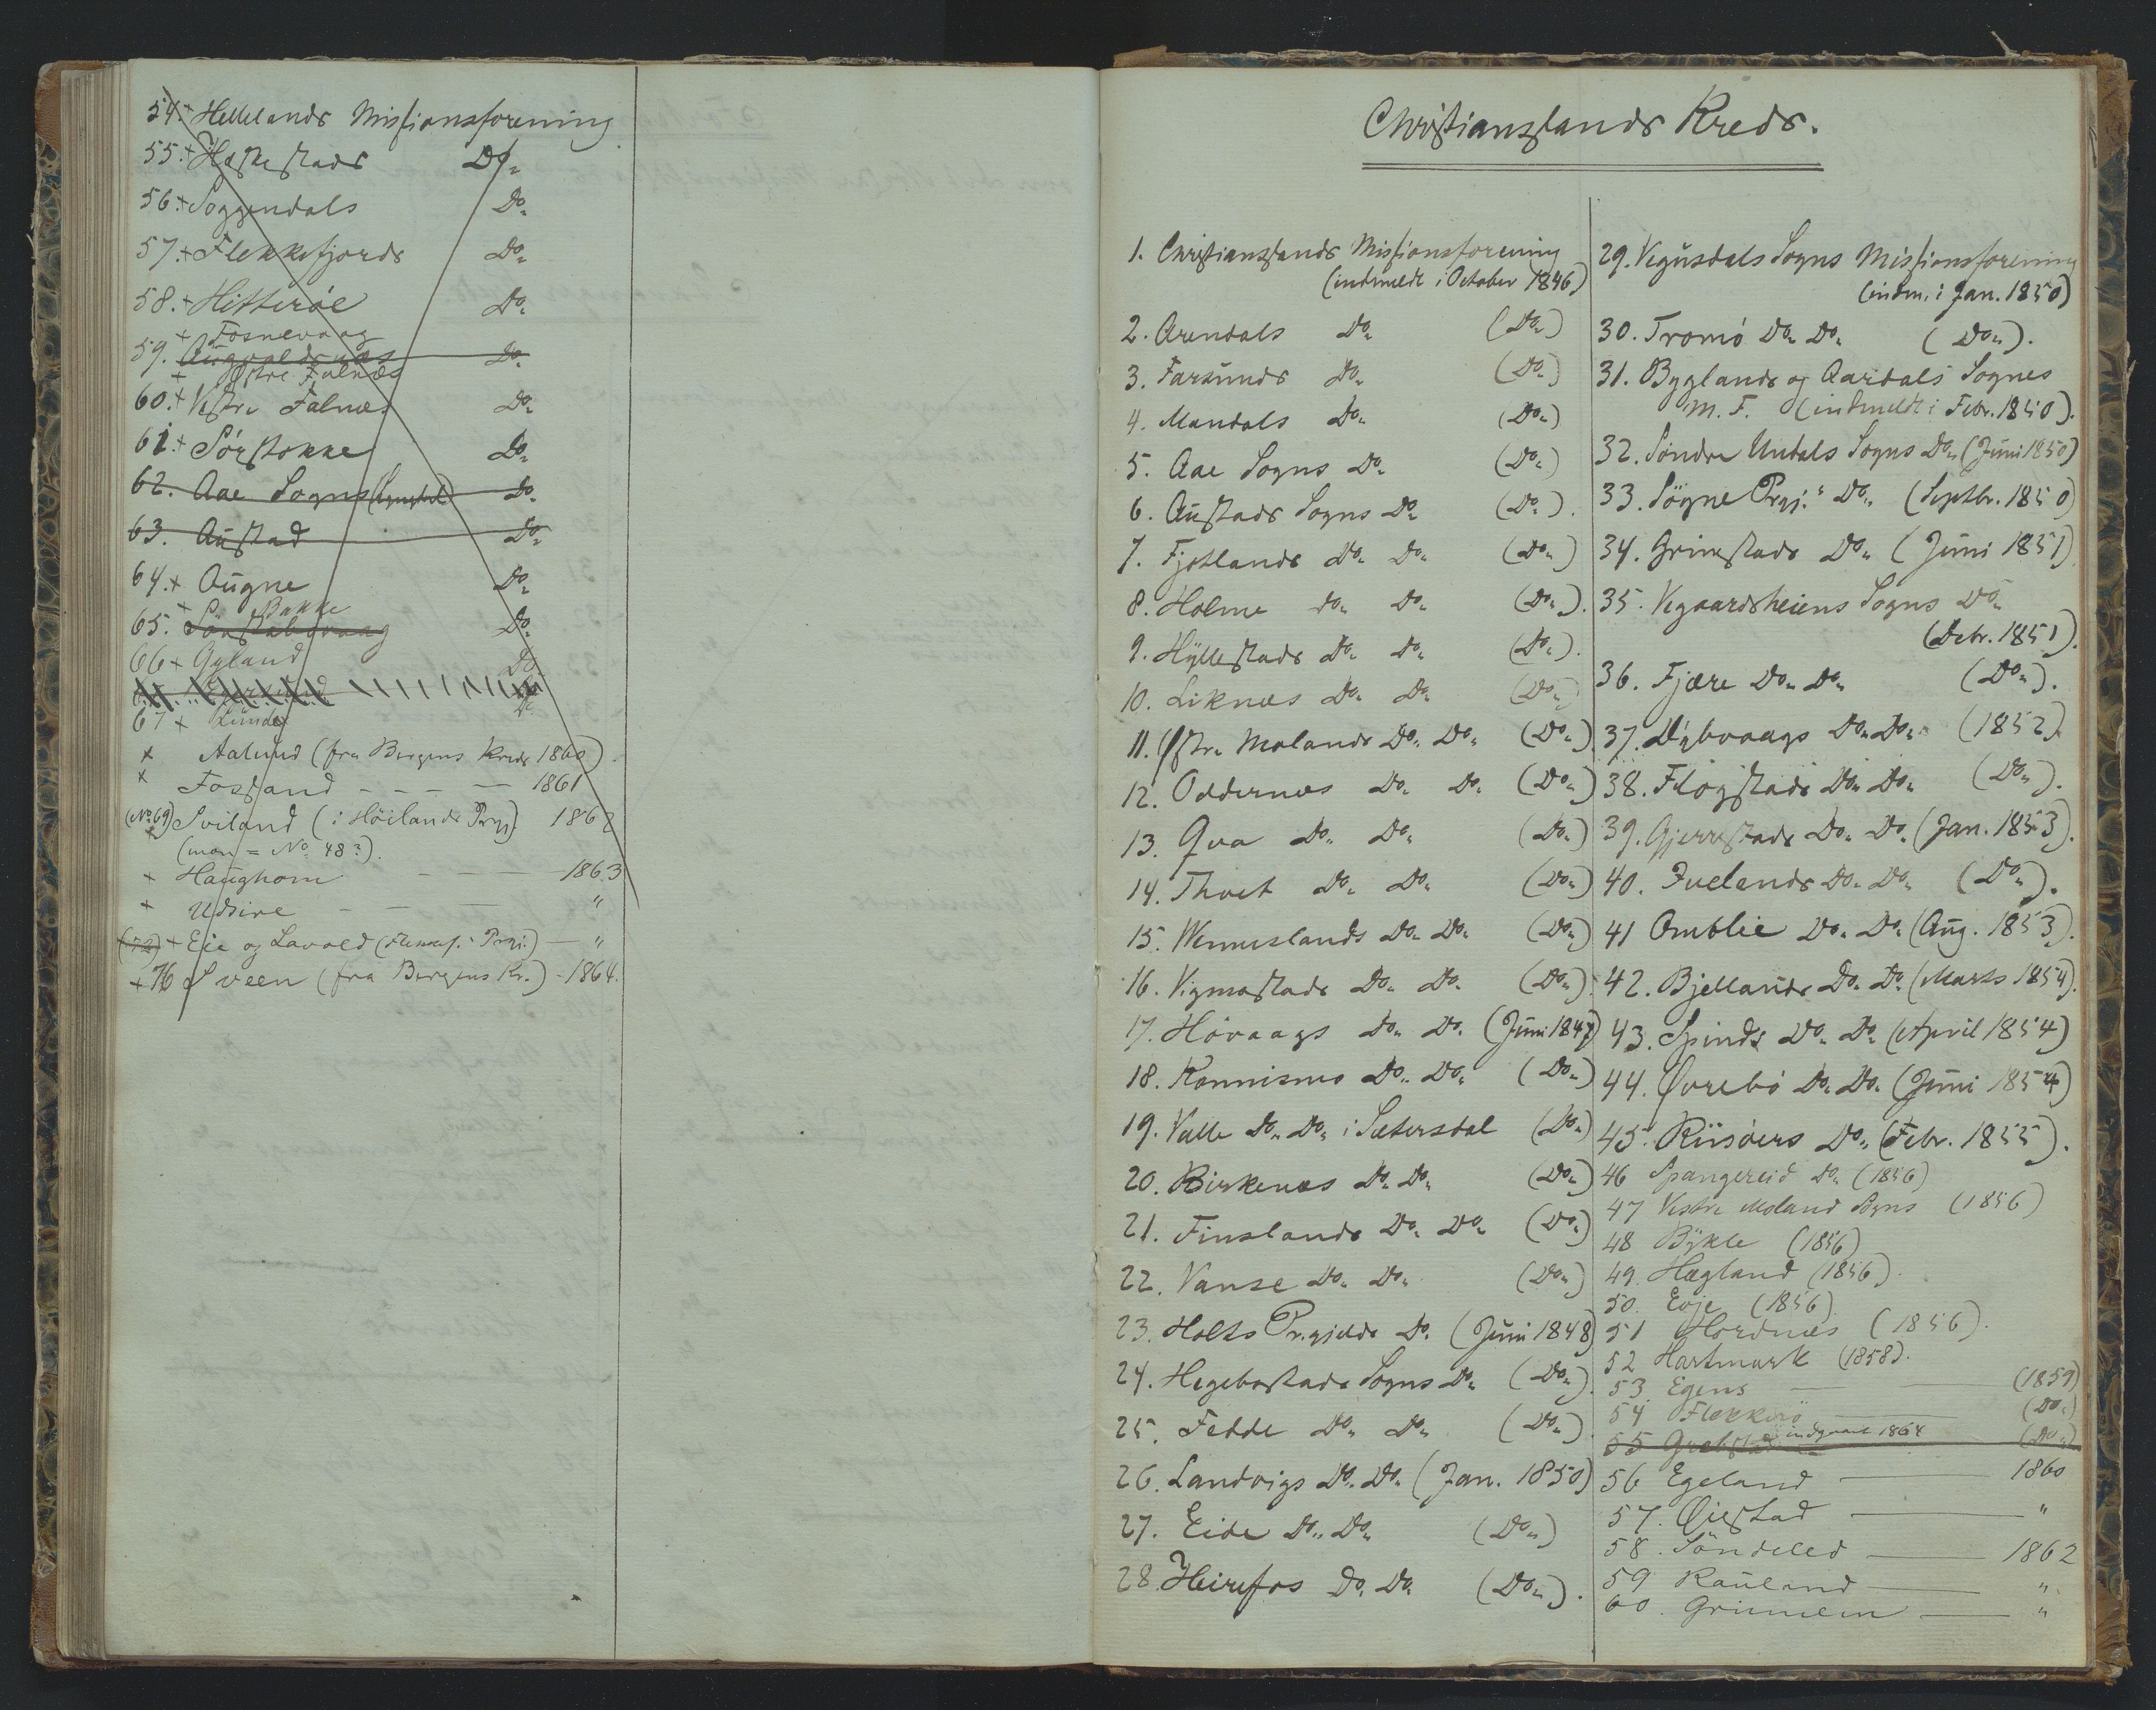 54.+ Hellelands Missionsforening
55.+ Heskestads Do.
56.+ Soggendals Do.
57.+ Flekkefjords Do.
58.+ Hitterøe Do.
+ Fosnevaag
59. Augvaldsnæs Do.
+ Østre Falnæs
60.+ Vestre Falnæs Do.
61.+ Sørstokke Do.
62. Aae Sogns (Lyngdal) Do.
63. Austad Do.
64.+ Augne Do.
+ Bakke
65. Do.
66+ Gyland Do.
Do.
67+ Lunde
+ Aalund (fra Bergens Kreds 1860).
+ Fossand - - - - 1861
(No 69) + Sviland (i Høilands Prgj) 1862
(mon = No 48?).
+ Haughom - - - 1863
+ Udsire - - - "
(72) + Eie og Lavold (Flekkef. Prgj.) - "
+76 Sveen (fra Bergens Kr.) - 1864.
Christianssands Kreds.
1. Christianssands Missionsforening
(indmeldt i October 1846)
2. Arendals Do. (Do.)
3. Farsunds Do. (Do.)
4. Mandals Do. (Do.)
5. Aae Sogns Do. (Do.)
6. Austads Sogns Do. (Do.).
7. Fjotlands Do. Do. (Do.)
8. Holme Do. Do. (Do.).
9. Hyllestads Do. Do. (Do.).
10. Liknæs Do. Do. (Do.)
11. Østre Molands Do. Do. (Do.)
12. Oddernæs Do. Do. (Do.)
13. Qva Do. Do. (Do.)
14. Thveit Do. Do. (Do.)
15. Wenneslands Do. Do. (Do.)
16. Vigmostads Do. Do. (Do.)
17. Høvaags Do. Do. (Juni 1847)
18. Konnismo Do. Do. (Do.)
19. Valle Do. Do. i Sætersdal (Do.)
20. Birkenæs Do. Do. (Do.)
21. Finslands Do. Do. (Do.)
22. Vanse Do. Do. (Do.)
23. Holts Pr.gjelds Do. (Juni 1848)
24. Hegebostads Sogns Do. (Do.).
25. Fedde Do. Do. (Do.).
26. Landvigs Do. Do. (Jan. 1850)
27. Eide Do. Do. (Do.)
28. Heirefos Do. Do. (Do.).
29. Vegusdals Sogns Missionsforening
(indm. i Jan. 1850)
30. Tromø Do. Do. (Do.).
31. Byglands og Aardals Sognes
M. F. (indmeldt i Febr. 1850).
32. Søndre Undals Sogns Do. (Juni 1850)
33. Søgne Prgj.s Do. (Septbr. 1850)
34. Grimstads Do. (Juni 1851)
35. Vegaardsheiens Sogns Do.
(Debr. 1851).
36. Fjære Do. Do. (Do.).
37. Dybvaags Do. Do. (1852)
38. Flogstads Do. Do. (Do.).
39. Gjerrestads Do. Do. (Jan. 1853).
40. Ivelands Do. Do. (Do.).
41 Omblie Do. Do. (Aug. 1853).
42. Bjellands Do. Do. (Marts 1854).
43. Spinds Do. Do. (April 1854)
44. Øvrebø Do. Do. (Juni 1854)
45. Riisøers Do. (Febr. 1855).
46 Spangereid Do. (1856)
47 Vestre Moland Sogns (1856)
48 Bykle (1856)
49. Hægland (1856).
50. Evje (1856)
51 Hordnæs (1856).
52 Hartmark (1858).
53 Egens — (1859)
54 Flekkerø — (Do.)
55 indgaaet 1864 (Do.)
56 Egeland — 1860
57. Øiestad — "
58. Søndeled — 1862
59 Rauland — "
60. Grimnem — "